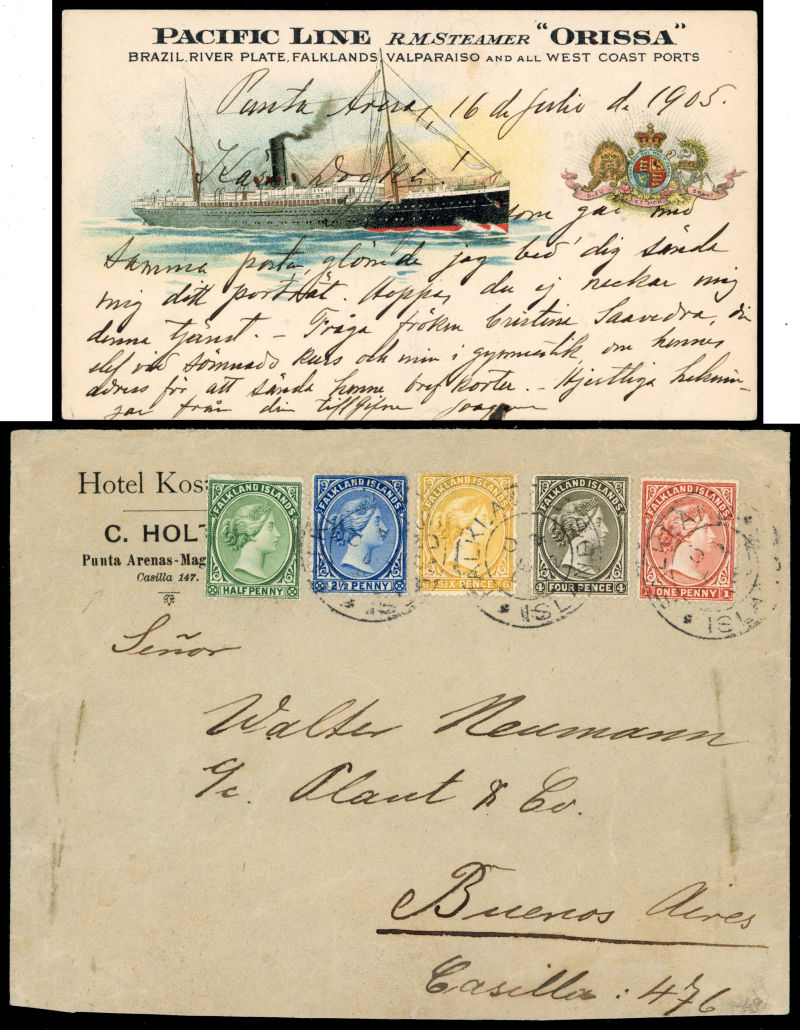 PACIFIC LINE R.M.STEAMER "ORISSA"
BRAZIL, RIVER PLATE, FALKLANDS, VALPARAISO AND ALL WEST COAST PORTS
Punta Arenas 16 de Julio de 1905.
Kära
som går med
samma posta, glömde jag bed dig sända
mig ditt porträt. Hoppas du ej neckar mig
denna tjänst. – Fråga fröken Cristina Saavedra, din
elev vid sömnads kurs och min i gymnastik, om hennes
adress för att sända henne brefkorter. – Hjertliga helsnin-
gar från din tillgifne
Hotel Kos
C. HOLT
Punta Arenas-Mag
Casilla 147.
FALKLAND ISLANDS
HALF PENNY
FALKLAND ISLANDS
2½ PENNY
FALKLAND ISLANDS
6 SIX PENCE 6
FALKLAND ISLANDS
4 FOUR PENCE 4
FALKLAND ISLANDS
1 ONE PENNY 1
Señor
Walter Neumann
c/c. Plaut & Co.
Buenos Aires
Casilla : 476